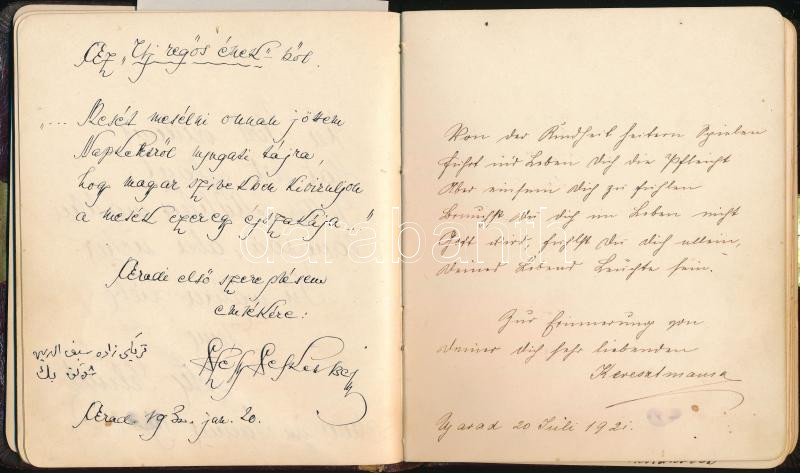 Az "Uj regös ének"-ből.
"... Mesét mesélni onnan jöttem
Napkeletről nyugati tájra,
hogy magyar szivekben kiviruljon
a mesék ezeregy éjszakája..."
Aradi első szereplésem
emlékére:
قزيكى زاده سيف الدين
شوكت بك
Arad. 193 . jan. 20.
Von der Kindheit heitern Spielen
Führt ins Leben Dich die Pflicht
Aber einsam Dich zu fühlen
Brauchst Du dich im Leben nicht
Gott wird, fühlst Du Dich allein,
Deines Lebens Leuchte sein.
Zur Erinnerung von
deiner Dich sehr liebenden
Keresztmama
Ujarad 20 Juli 1921.
darabanth